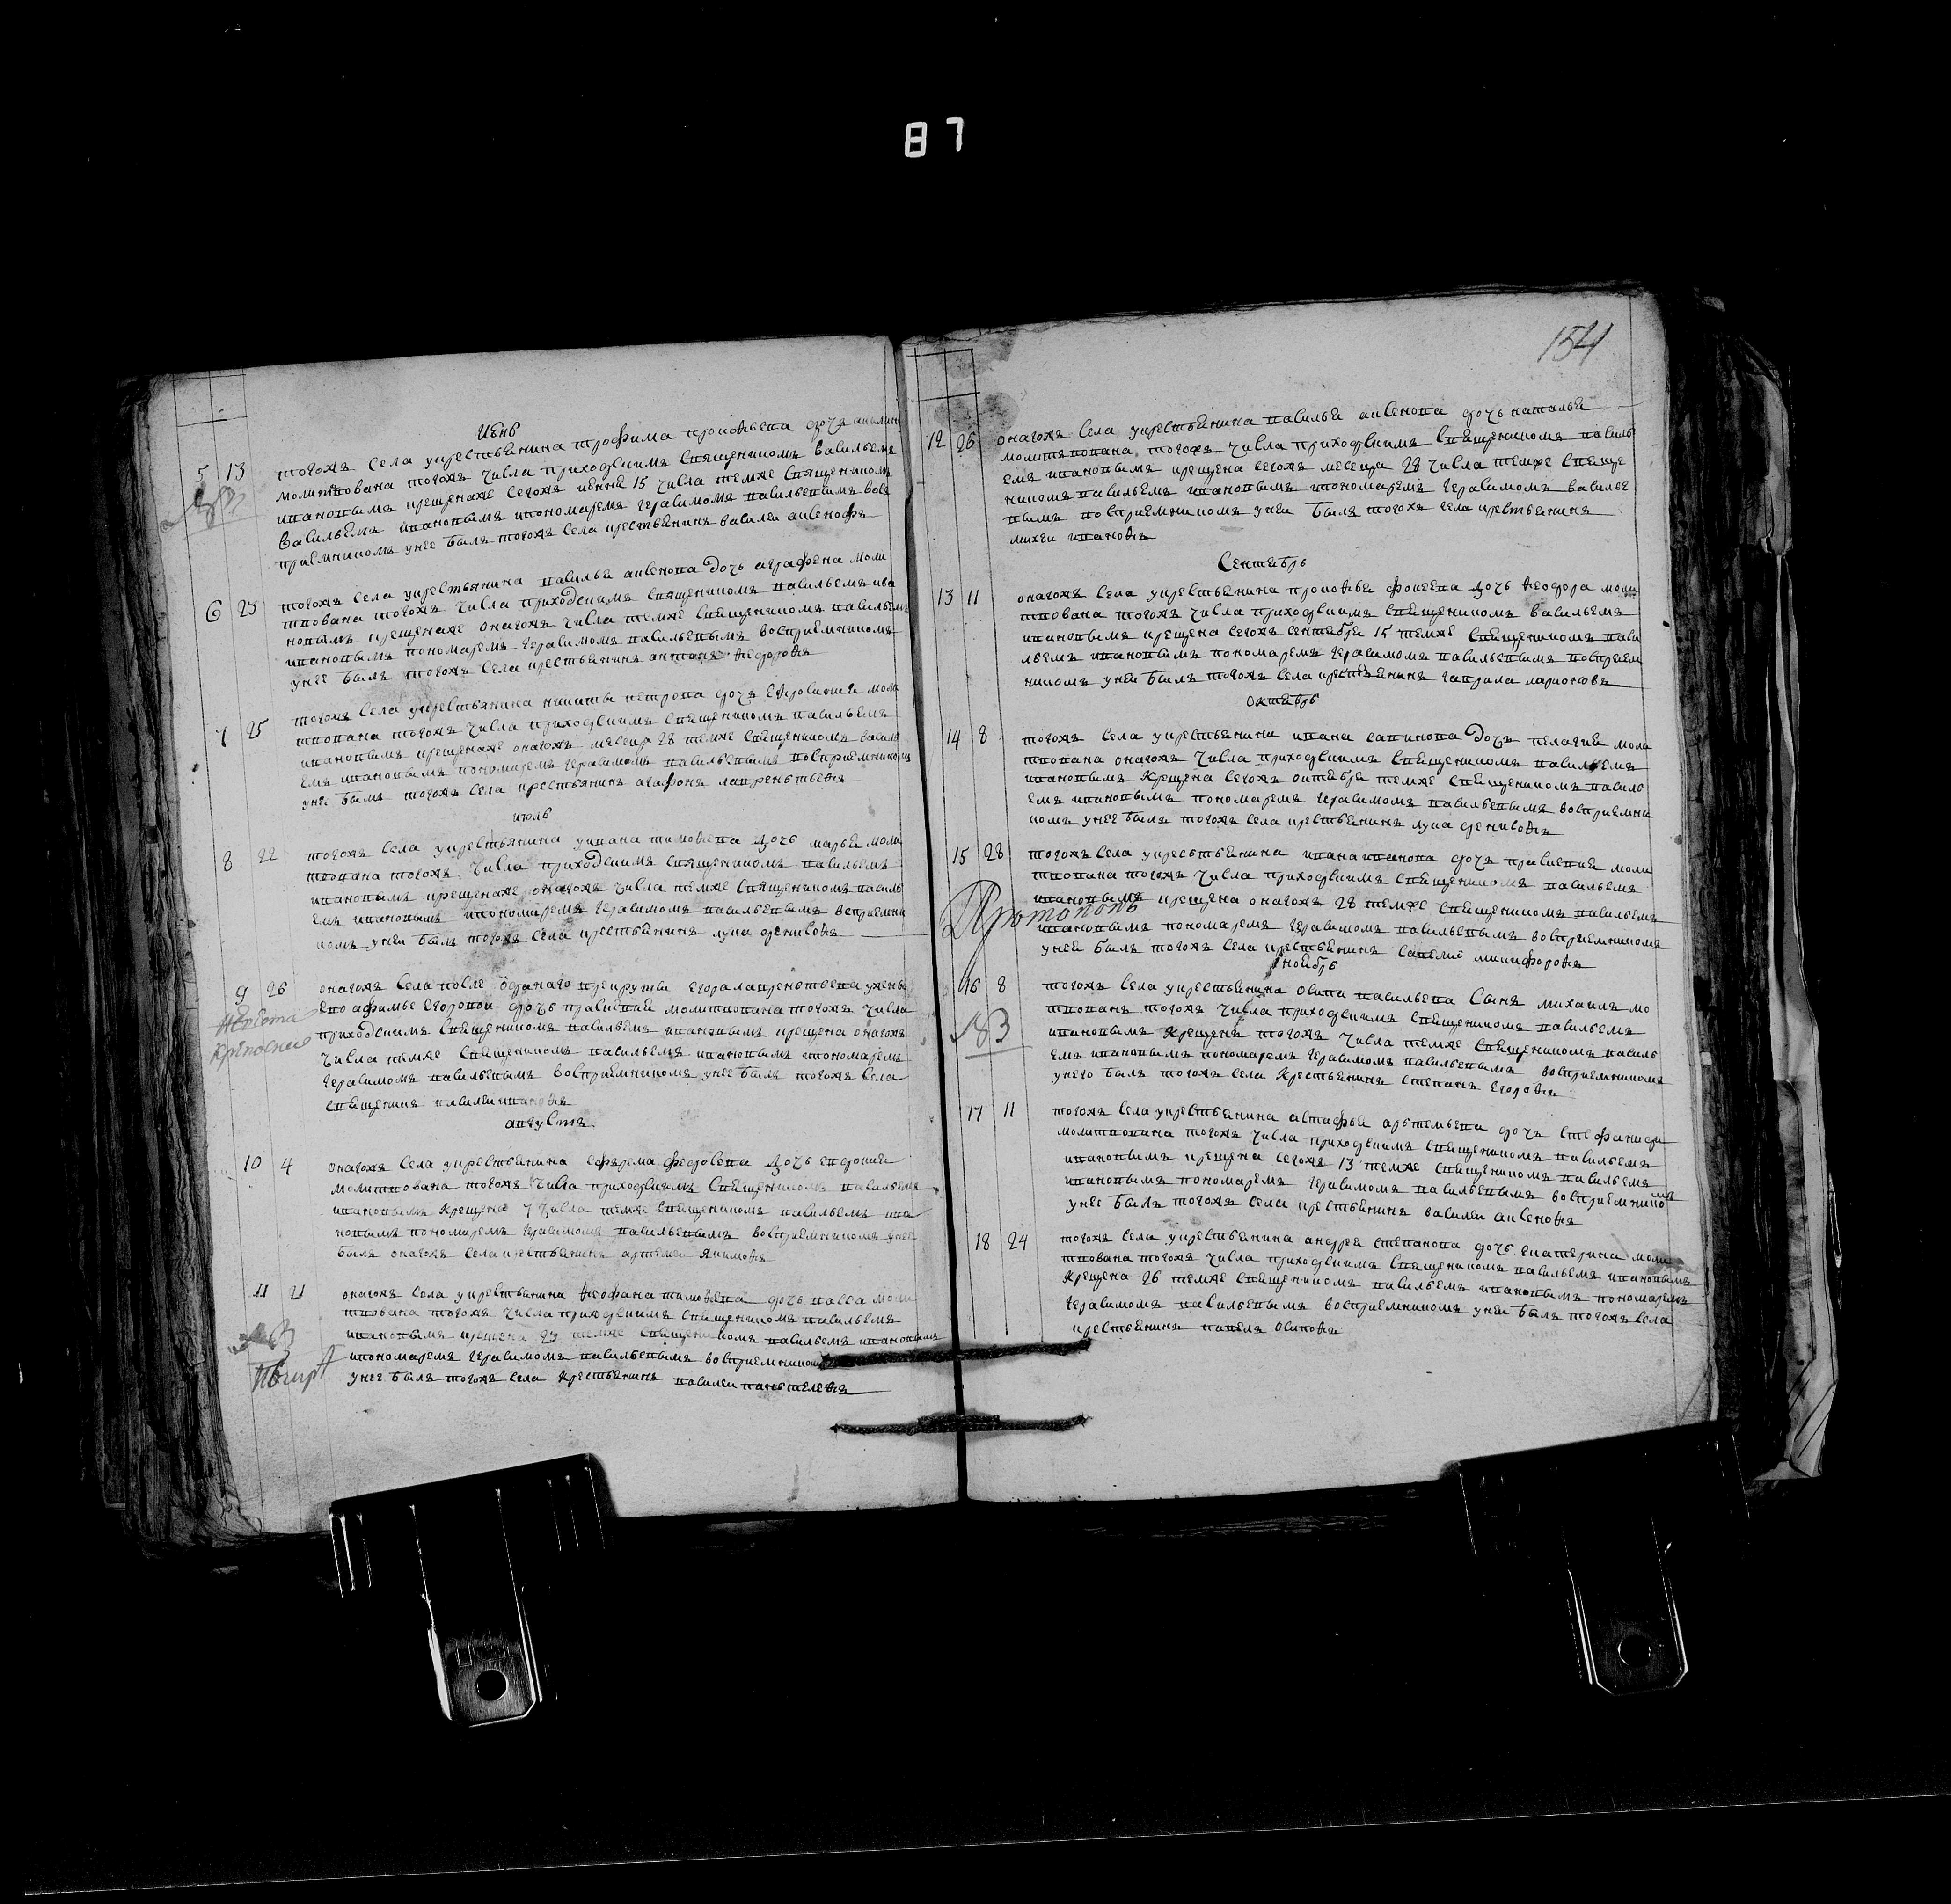 87
154
июнь
5 13 тогожъ села укрестьянина трофима прокофьева дочь акилина
молитвована тогожъ числа приходскимъ священникомъ василъемъ
ивановымъ крещенаже сегожъ июня 15 числа темже священникомъ
василъемъ ивановымъ ипономаремъ герасимомъ васильевымъ вос
приемникомъ унее былъ тогожъ села крестьянинъ василеи аксенофъ
6 23 тогожъ села укрестьянина василья аксенова дочь аграфена моли
твована тогожъ числа приходскимъ священникомъ васильемъ ива
новымъ крещенаже оногожъ числа темже священникомъ васильемъ
ивановымъ пономаремъ герасимомъ васильевымъ восприемникомъ
унее былъ тогожъ села крестьянинъ антонъ ѳедоровъ
7 25 тогожъ села укрестьянина никиты петрова дочь евфросиния моли
твована тогожъ числа приходскимъ священникомъ васильемъ
ивановымъ крещенаже оногожъ месеца 28 темже священникомъ василь
емъ ивановымъ пономаремъ герасимомъ васильевымъ восприемникомъ
унее былъ тогожъ села крестьянинъ агафонъ лаврентьевъ
июль
8 22 тогожъ села укрестьянина уивана тимофеева дочь марья моли
твована тогожъ числа приходскимъ священникомъ васильемъ
ивановымъ крещенаже оногожъ числа темже священникомъ василь
емъ ивановымъ ипономаремъ герасимомъ васильевымъ восприемни
комъ унеи былъ тогожъ села крестьянинъ лука денисовъ
9 26 оногожъ села после отданаго врекруты егора лаврентьева ужены
ево афимье егоровои дочь прасковия молитвована тогожъ числа
приходскимъ священникомъ васильемъ ивановымъ крещена оногожъ
числа темже священникомъ васильемъ ивановымъ ипономаремъ
герасимомъ васильевымъ восприемникомъ унее былъ тогожъ села
священникъ василеи ивановъ
августъ
10 4 оногожъ села укрестьянина ефрема федосеева дочь евдокия
молитвована тогожъ числа приходскимъ священникомъ васильемъ
ивановымъ крещенаже 7 числа темже священникомъ васильемъ ива
новымъ пономаремъ герасимомъ васильевымъ восприемникомъ унее
былъ оногожъ села крестьянинъ артемеи якимовъ
11 21 оногожъ села укрестьянина ѳеофана тимофеева дочь васса моли
твована тогожъ числа приходскимъ священникомъ васильемъ
ивановымъ крещена 23 темже священникомъ васильемъ ивановымъ
ипономаремъ герасимомъ васильевымъ восприемникомъ
унее былъ тогожъ села крестьянинъ василеи пантелевъ
12 26 оногожъ села укрестьянина василья аксенова дочь наталья
молитвована тогожъ числа приходскимъ священникомъ василь
емъ ивановымъ крещена сегожъ месеца 28 числа темже свяще
никомъ васильемъ ивановымъ ипономаремъ герасимомъ василье
вымъ восприемникомъ унеи былъ тогожъ села крестьянинъ
михеи ивановъ
Сентябрь
13 11 оногожъ села укрестьянина прокофья фокеева дочь ѳеодора моли
твована тогожъ числа приходскимъ священникомъ васильемъ
ивановымъ крещена сегожъ сентября 15 темже священникомъ васи
льемъ ивановымъ пономаремъ герасимомъ васильевымъ восприем
никомъ унеи былъ тогожъ села крестьянинъ гаврила ларионовъ
октябрь
14 8 тогожъ села укрестьянина ивана савинова дочь пелагия моли
твована оногожъ числа приходскимъ священникомъ васильемъ
ивановымъ крещена сегожъ октября темже священникомъ василь
емъ ивановымъ пономаремъ герасимомъ васильевымъ восприемни
комъ унее былъ тогожъ села крестьянинъ лука денисовъ
15 28 тогожъ села укрестьянина ивана иванова дочь прасковия моли
твована тогожъ числа приходскимъ священникомъ васильемъ
ивановымъ крещена оногожъ 28 темже священникомъ васильемъ
Протопопъ
ивановымъ пономаремъ герасимомъ васильевымъ восприемникомъ
унеи былъ тогожъ села крестьянинъ савелеи никифоровъ
ноябрь
16 8 тогожъ села укрестьянина осипа васильева сынъ михаилъ мо
твованъ тогожъ числа приходскимъ священникомъ васильемъ
ивановымъ крещенъ тогожъ числа темже священникомъ василь
емъ ивановымъ пономаремъ герасимомъ васильевымъ восприемникомъ
унего былъ тогожъ села крестьянинъ степанъ егоровъ
17 11 тогожъ села укрестьянина астафья артемьева дочь стефанида
молитвована тогожъ числа приходскимъ священникомъ васильемъ
ивановымъ крещена сегожъ 13 темже священникомъ васильемъ
ивановымъ пономаремъ герасимомъ васильевымъ восприемникомъ
унее былъ тогожъ села крестьянинъ василеи аксеновъ
18 24 тогожъ села укрестьянина андрея степанова дочь екатерина моли
твована тогожъ числа приходскимъ священникомъ васильемъ ивановымъ
крещена 26 темже священникомъ васильемъ ивановымъ пономаремъ
герасимомъ васильевымъ восприемникомъ унеи былъ тогожъ села
крестьянинъ павелъ осиповъ